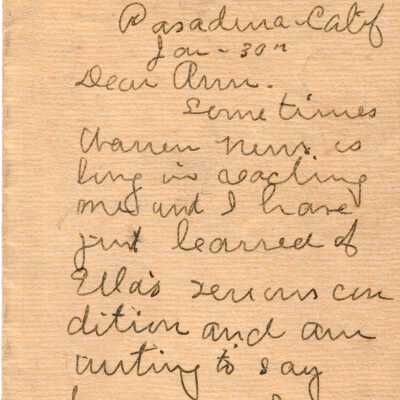 Pasadena - Calif
Jan - 30th
Dear Ann.
Sometimes
Warren news is
long in reaching
me and I have
just learned of
Ella's serious con
dition and am
writing to say